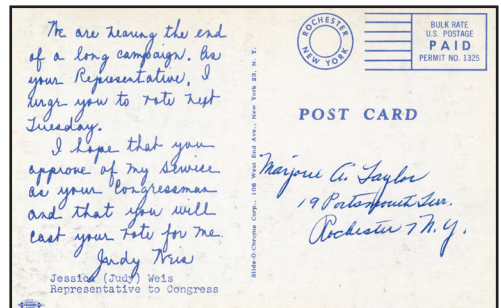 We are nearing the end
of a long campaign. As
your Representative, I
urge you to vote next
Tuesday.
I hope that you
approve of my service
as your Congressman
and that you will
cast your vote for me.
Judy Weis
Jessica (Judy) Weis
Representative to Congress
Slide-O-Chrome Corp., 108 West End Ave., New York 23, N. Y.
ROCHESTER
NEW YORK
BULK RATE
U.S. POSTAGE
PAID
PERMIT NO. 1325
POST CARD
Marjorie A. Taylor
19 Portsmouth Terr.
Rochester 7 N.Y.